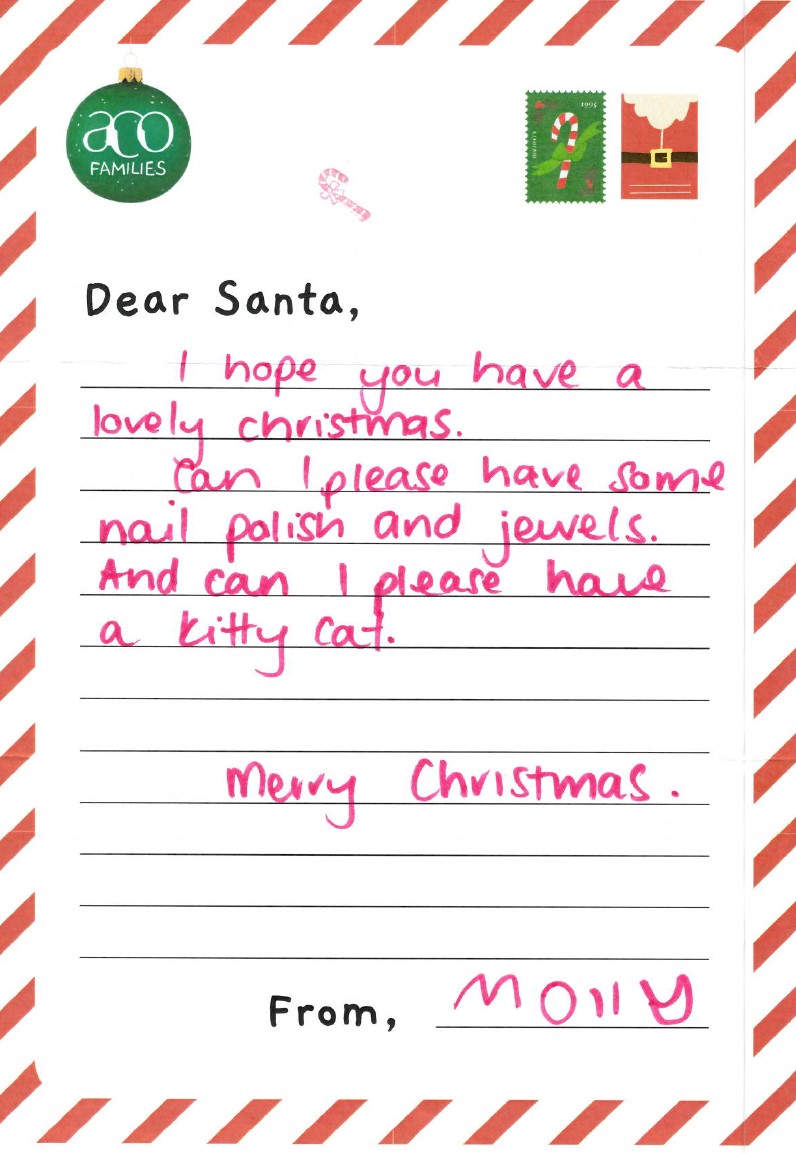 aco
FAMILIES
1995
Dear Santa,
I hope you have a
lovely christmas.
Can I please have some
nail polish and jewels.
And can I please have
a kitty cat.
Merry Christmas.
From, Molly